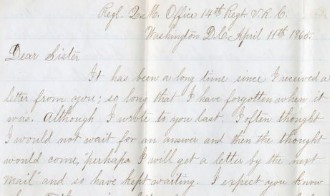 Regl. Q. M. Office 14th Regt V. R. C.
Washington D.C. April 11th 1865.
Dear Sister
It has been a long time since I received a
letter from you; so long that I have forgotten when it
was. Although I wrote to you last. I often thought
I would not wait for an answer and then the thought
would come, perhaps I will get a letter by the next
mail and so have kept waiting. I expect you know